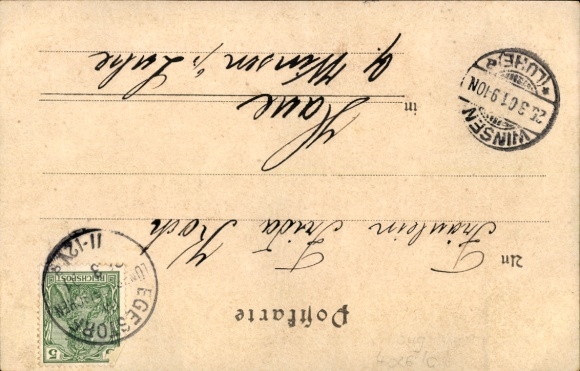 Postkarte
An
Fräulein Frida Koch
in Haue
b/ Winsen a/ Luhe
WINSEN
* (LUHE) *
23.3.01.9-10N.
EGESTORF
11-12V.
REICHSPOST
5